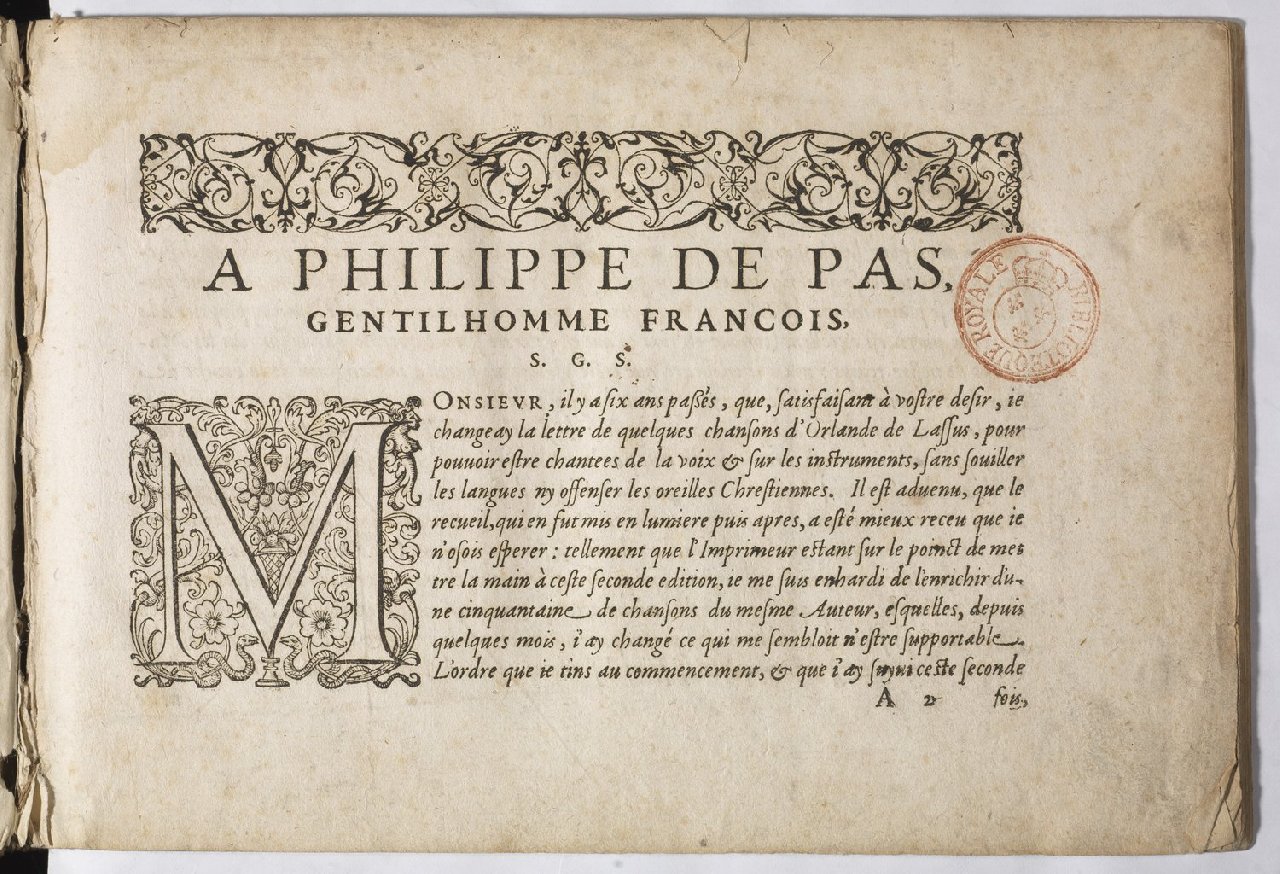 A PHILIPPE DE PAS,
GENTILHOMME FRANCOIS,
S. G. S.
MONSIEVR, il y a six ans passés, que, satisfaisant à vostre desir, ie
changeay la lettre de quelques chansons d'Orlande de Lassus, pour
pouuoir estre chantees de la voix & sur les instruments, sans souiller
les langues ny offenser les oreilles Chrestiennes. Il est aduenu, que le
recueil, qui en fut mis en lumiere puis apres, a esté mieux receu que ie
n'osois esperer : tellement que l'Imprimeur estant sur le poinct de met
tre la main à ceste seconde edition, ie me suis enhardi de l'enrichir d'u-
ne cinquantaine de chansons du mesme Auteur, esquelles, depuis
quelques mois, i'ay changé ce qui me sembloit n'estre supportable
L'ordre que ie tins au commencement, & que i'ay suyui ceste seconde
A 2 fois,
BIBLIOTEQUE ROYALE